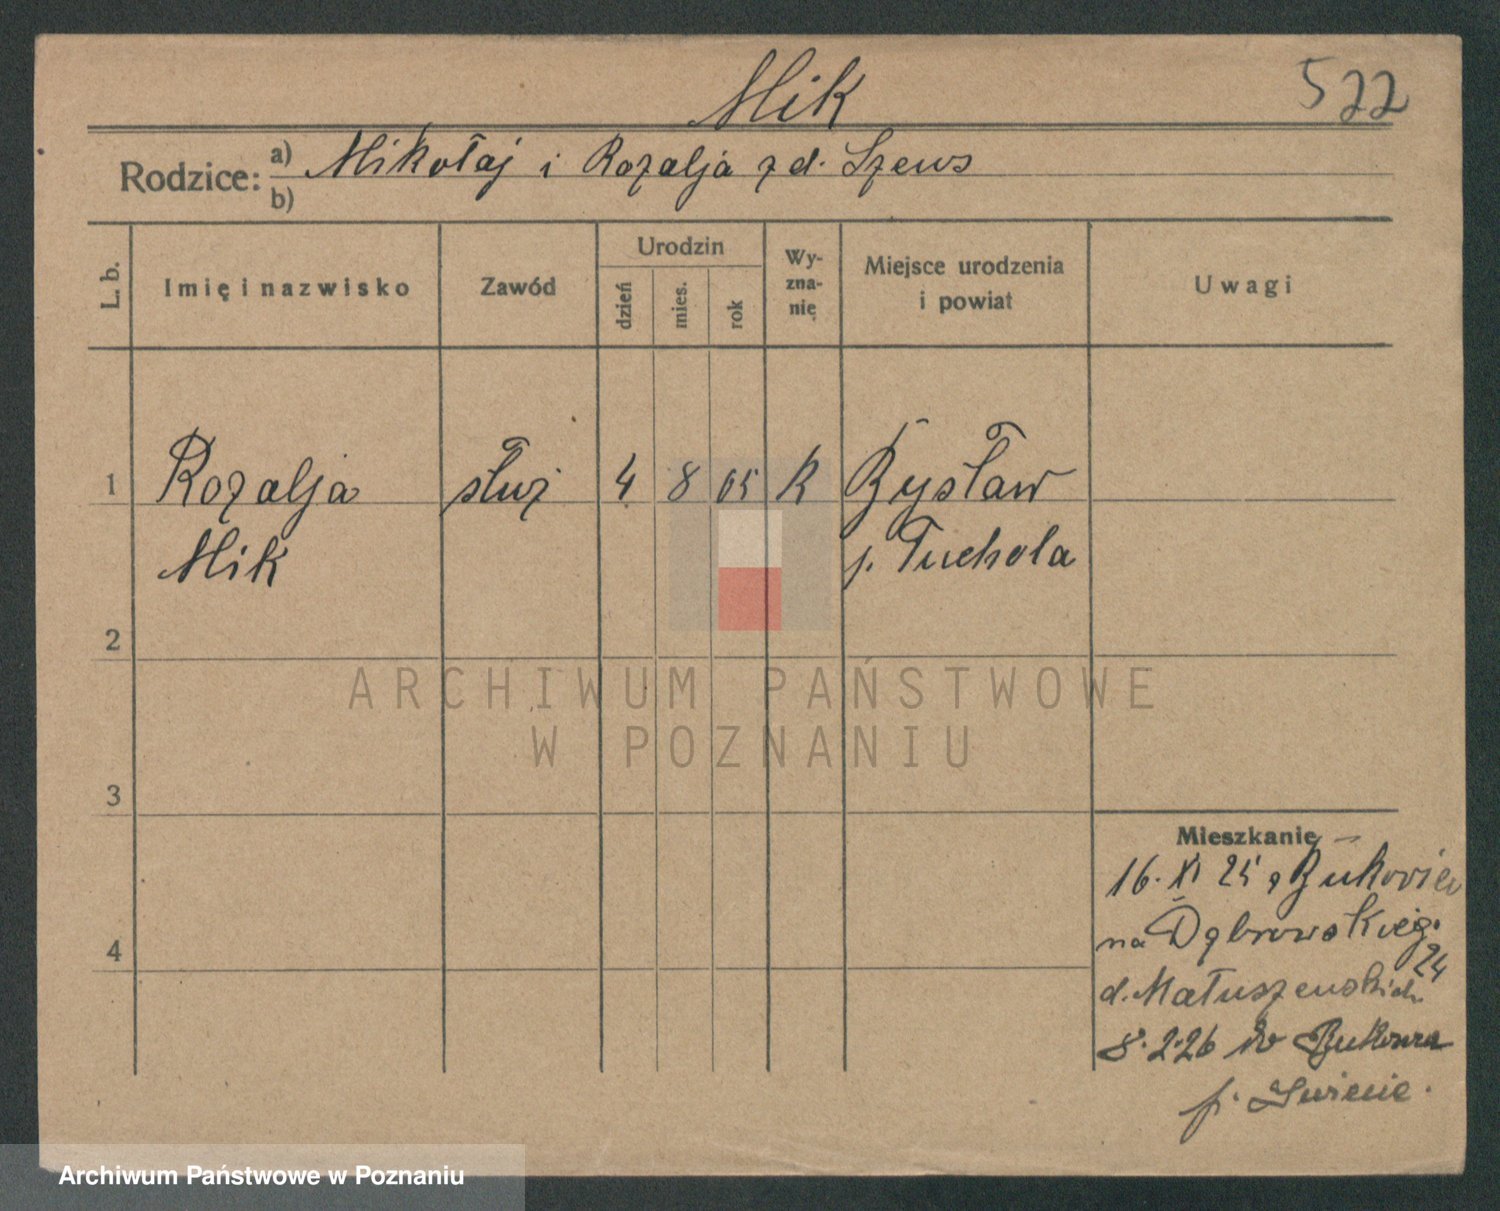 Mik
522
Rodzice: a) Mikołaj i Rozalja z d. Szews
b)
L. b.
Imię i nazwisko
Zawód
Urodzin
dzień
mies.
rok
Wy-
zna-
nie
Miejsce urodzenia
i powiat
Uwagi
1 Rozalja służ 4 8 05 R Bysław
Mik p. Tuchola
2
ARCHIWUM PAŃSTWOWE
W POZNANIU
3
Mieszkanie
16. XI 25 z Bukowiec
na Dąbrowskieg.
24
d. Matuszewskich
4
8.2.26 do Bukowca
p. Świecie.
Archiwum Państwowe w Poznaniu